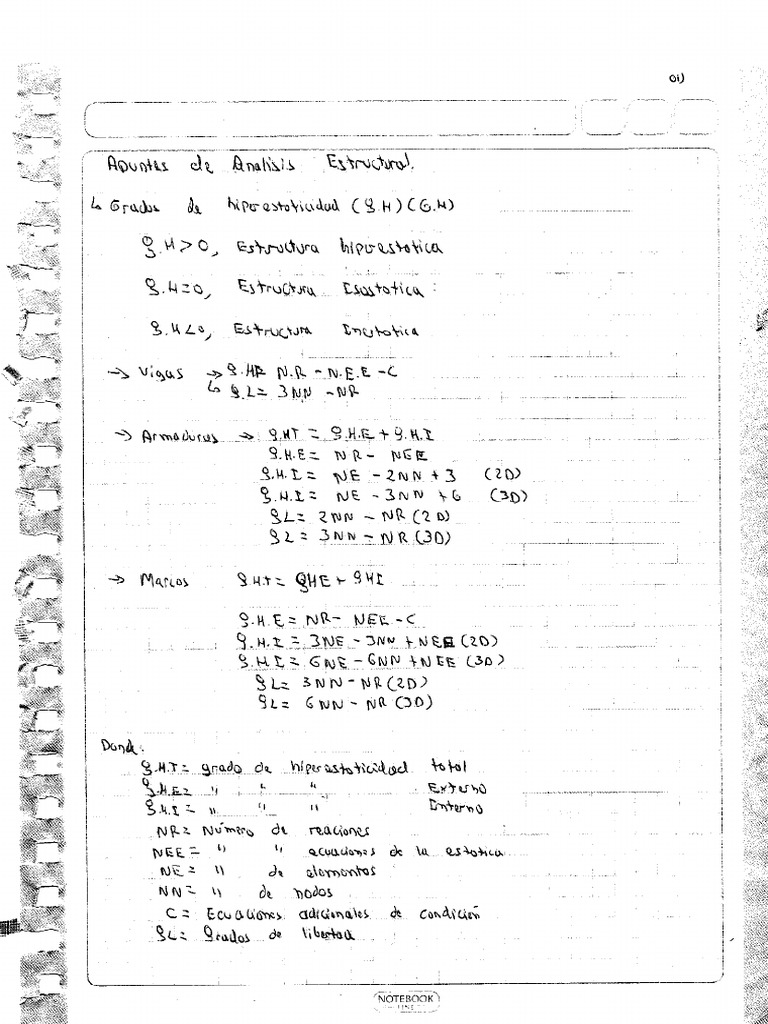 01)
Apuntes de Analisis Estructural.
↳ Grados de hiperestaticidad (g.H) (G.H)
g.H>0, Estructura hiperestatica
g.H=0, Estructura Isostatica :
g.H<0, Estructura Inestatica
→ Vigas → g.H= N.R - N.E.E - C
↳ g.L= 3NN - NR
→ Armaduras → g.HT = g.H.E + g.H.I
g.H.E = NR - NEE
g.H.I = NE - 2NN + 3 (2D)
g.H.I = NE - 3NN + 6 (3D)
gL = 2NN - NR (2D)
gL = 3NN - NR (3D)
→ Marcos g.H.T = gHE + gHI
g.H.E = NR - NEE - C
g.H.I = 3NE - 3NN + NEE (2D)
g.H.I = 6NE - 6NN + NEE (3D)
gL = 3NN - NR (2D)
gL = 6NN - NR (3D)
Donde:
g.H.T = grado de hiperestaticidad total
g.H.E = " " " Externo
g.H.I = " " " Interno
NR = Número de reacciones
NEE = " " ecuaciones de la estatica
NE = " de elementos
NN = " de nodos
C = Ecuaciones adicionales de condición
gL = grados de libertad
NOTEBOOK
LINE